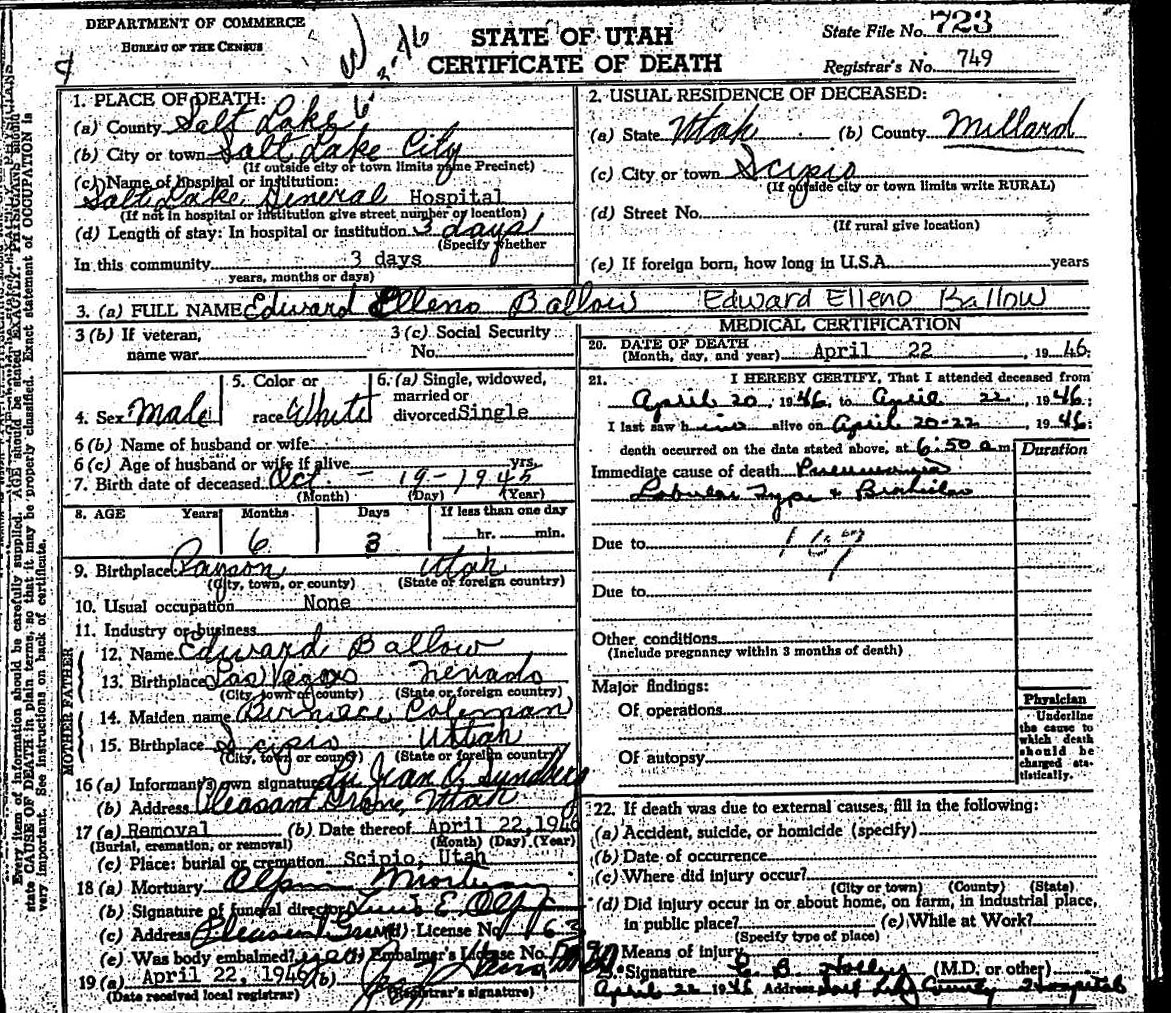 DEPARTMENT OF COMMERCE
BUREAU OF THE CENSUS
STATE OF UTAH
CERTIFICATE OF DEATH
State File No. 723
Registrar's No. 749
1. PLACE OF DEATH:
(a) County Salt Lake
(b) City or town Salt Lake City
(If outside city or town limits name Precinct)
(c) Name of hospital or institution:
Salt Lake General Hospital
(If not in hospital or institution give street number or location)
(d) Length of stay: In hospital or institution 3 days
(Specify whether
In this community 3 days
years, months or days)
2. USUAL RESIDENCE OF DECEASED:
(a) State Utah (b) County Millard
(c) City or town Scipio
(If outside city or town limits write RURAL)
(d) Street No.
(If rural give location)
(e) If foreign born, how long in U.S.A. years
3. (a) FULL NAME Edward Elleno Ballow Edward Elleno Ballow
3 (b) If veteran, name war
3 (c) Social Security No.
4. Sex Male
5. Color or race White
6. (a) Single, widowed, married or divorced Single
6 (b) Name of husband or wife
6 (c) Age of husband or wife if alive yrs.
7. Birth date of deceased Oct - 19 - 1945
(Month) (Day) (Year)
8. AGE Years Months Days If less than one day
6 3 hr. min.
9. Birthplace Payson Utah
(City, town, or county) (State or foreign country)
10. Usual occupation None
11. Industry or business
FATHER
12. Name Edward Ballow
13. Birthplace Las Vegas Nevada
(City, town or county) (State or foreign country)
MOTHER
14. Maiden name Berniece Coleman
15. Birthplace Scipio Utah
(City, town or county) (State or foreign country)
16 (a) Informant's own signature Jean C. Sundberg
(b) Address Pleasant Grove, Utah
17 (a) Removal (b) Date thereof April 22, 1946
(Burial, cremation, or removal) (Month) (Day) (Year)
(c) Place: burial or cremation Scipio, Utah
18 (a) Mortuary Olpin Mortuary
(b) Signature of funeral director E. Olpin
(c) Address Pleasant Grove License No. 163
(e) Was body embalmed? yes Embalmer's License No.
19 (a) April 22, 1946 (b)
(Date received local registrar) (Registrar's signature)
MEDICAL CERTIFICATION
20. DATE OF DEATH
(Month, day, and year) April 22, 1946.
21. I HEREBY CERTIFY, That I attended deceased from
April 20, 1946, to April 22, 1946;
I last saw him alive on April 20-22, 1946;
death occurred on the date stated above, at 6:50 a m. Duration
Immediate cause of death Pneumonia
Lobular Type &
Due to 107
Due to
Other conditions
(Include pregnancy within 3 months of death)
Major findings:
Of operations
Of autopsy
Physician
Underline the cause to which death should be charged statistically.
22. If death was due to external causes, fill in the following:
(a) Accident, suicide, or homicide (specify)
(b) Date of occurrence
(c) Where did injury occur?
(City or town) (County) (State)
(d) Did injury occur in or about home, on farm, in industrial place,
in public place? (e) While at Work?
(Specify type of place)
Means of injury
Signature C. B. Holley (M.D. or other)
April 22 1946 Address Salt Lake County Hospital
Every item of information should be carefully supplied. AGE should be stated EXACTLY. PHYSICIANS should
state CAUSE OF DEATH in plain terms, so that it may be properly classified. Exact statement of OCCUPATION is
very important. See instructions on back of certificate.